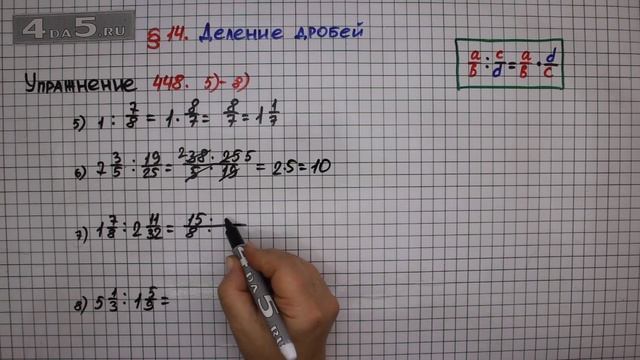 4DA5.RU
§ 14. Деление дробей
a/b : c/d = a/b · d/c
Упражнение 448. 5)-8)
5) 1 : 7/8 = 1 · 8/7 = 8/7 = 1 1/7
6) 7 3/5 : 19/25 = 2 38 · 25 5 / 5 · 19 = 2·5 = 10
7) 1 7/8 : 2 11/32 = 15 · / 8 ·
8) 5 1/3 : 1 5/9 =
DA5.RU